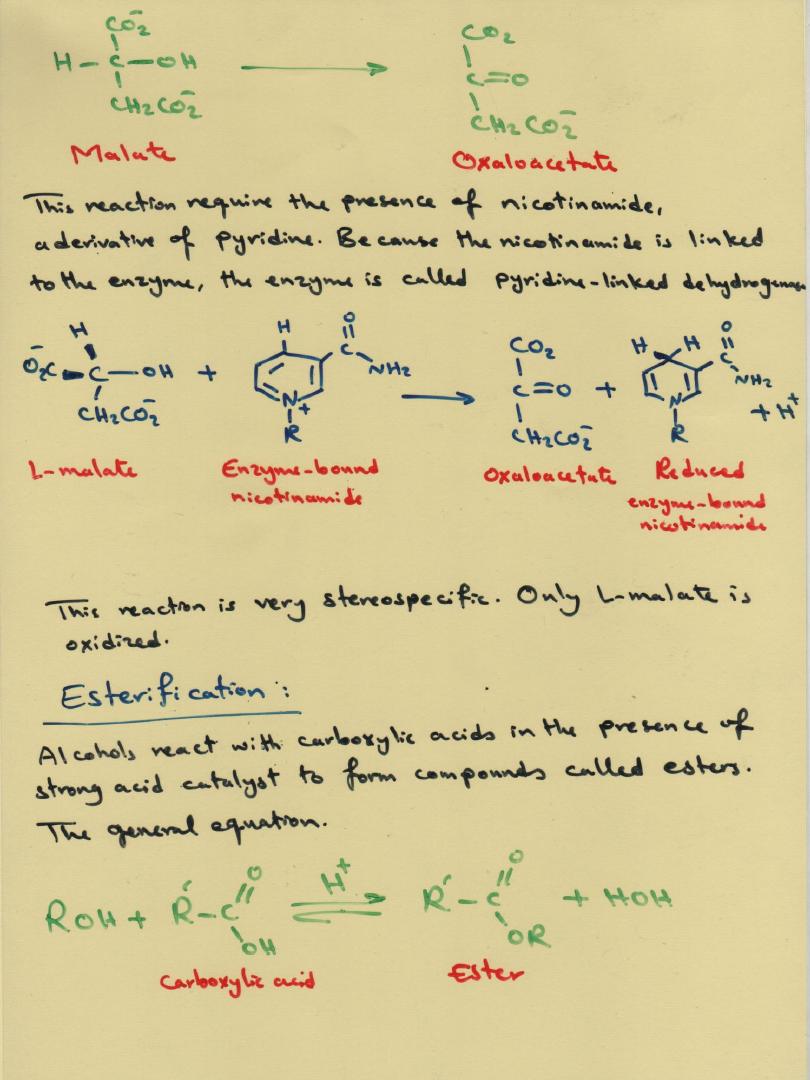 CO₂⁻
H – C – OH
CH₂CO₂⁻
Malate
CO₂
C=O
CH₂CO₂⁻
Oxaloacetate
This reaction require the presence of nicotinamide,
a derivative of pyridine. Because the nicotinamide is linked
to the enzyme, the enzyme is called pyridine-linked dehydrogenase
H
⁻O₂C C – OH +
CH₂CO₂⁻
L-malate
H O
C
NH₂
N⁺
R
Enzyme-bound
nicotinamide
CO₂
C=O +
CH₂CO₂⁻
Oxaloacetate
H H O
C
NH₂
N
R
+ H⁺
Reduced
enzyme-bound
nicotinamide
This reaction is very stereospecific. Only L-malate is
oxidized.
Esterification :
Alcohols react with carboxylic acids in the presence of
strong acid catalyst to form compounds called esters.
The general equation.
O H⁺ O
ROH + R′–C ⇌ R′–C + HOH
OH OR
Carboxylic acid Ester